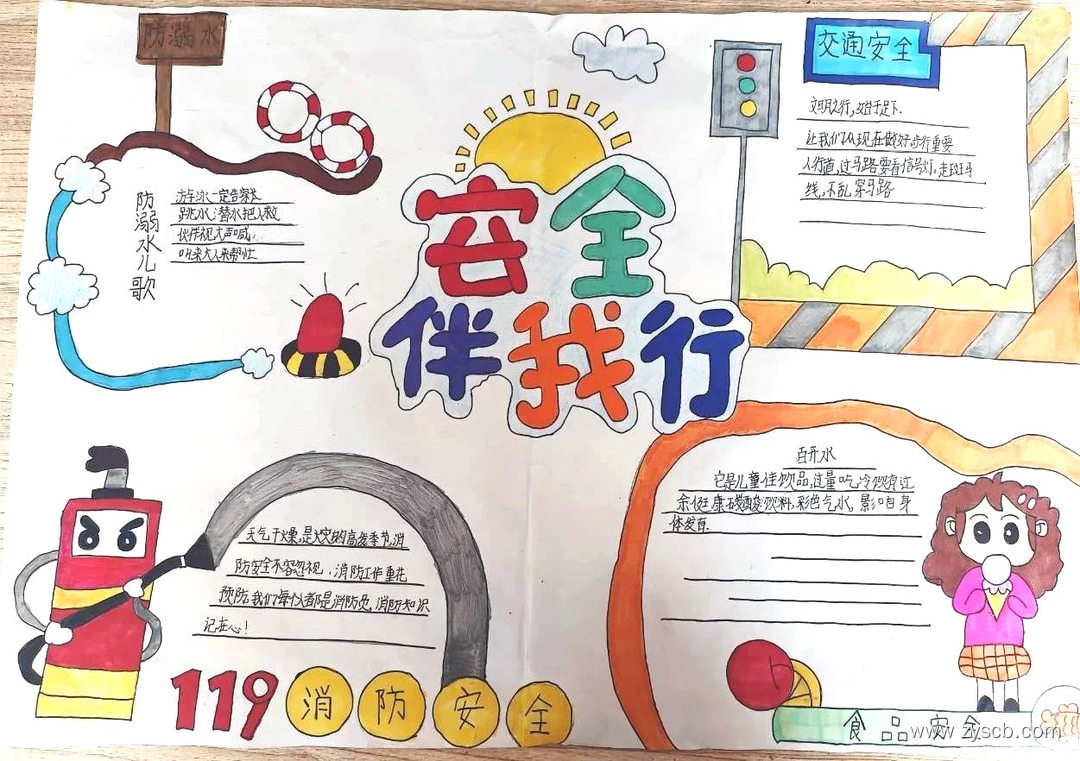 防溺水
防溺水儿歌
游泳一定告家长
跳水潜水把人救
伙伴视大声喊
叫来大人来帮忙
安全
伴我行
交通安全
文明之行,始于足下.
让我们从现在做好步行重要
人行道,过马路要看信号灯,走斑马
线,不乱穿马路
天气干燥,是火灾的高发季节,消
防安全不容忽视,消防工作重在
预防,我们每个人都是消防员,消防知识
记在心!
119
消防安全
百开水
它是儿童佳饮品,过量吃,冷饮有过
康碳酸饮料,彩色气水,影口自身
体发育.
食品安全
www.zyscb.com